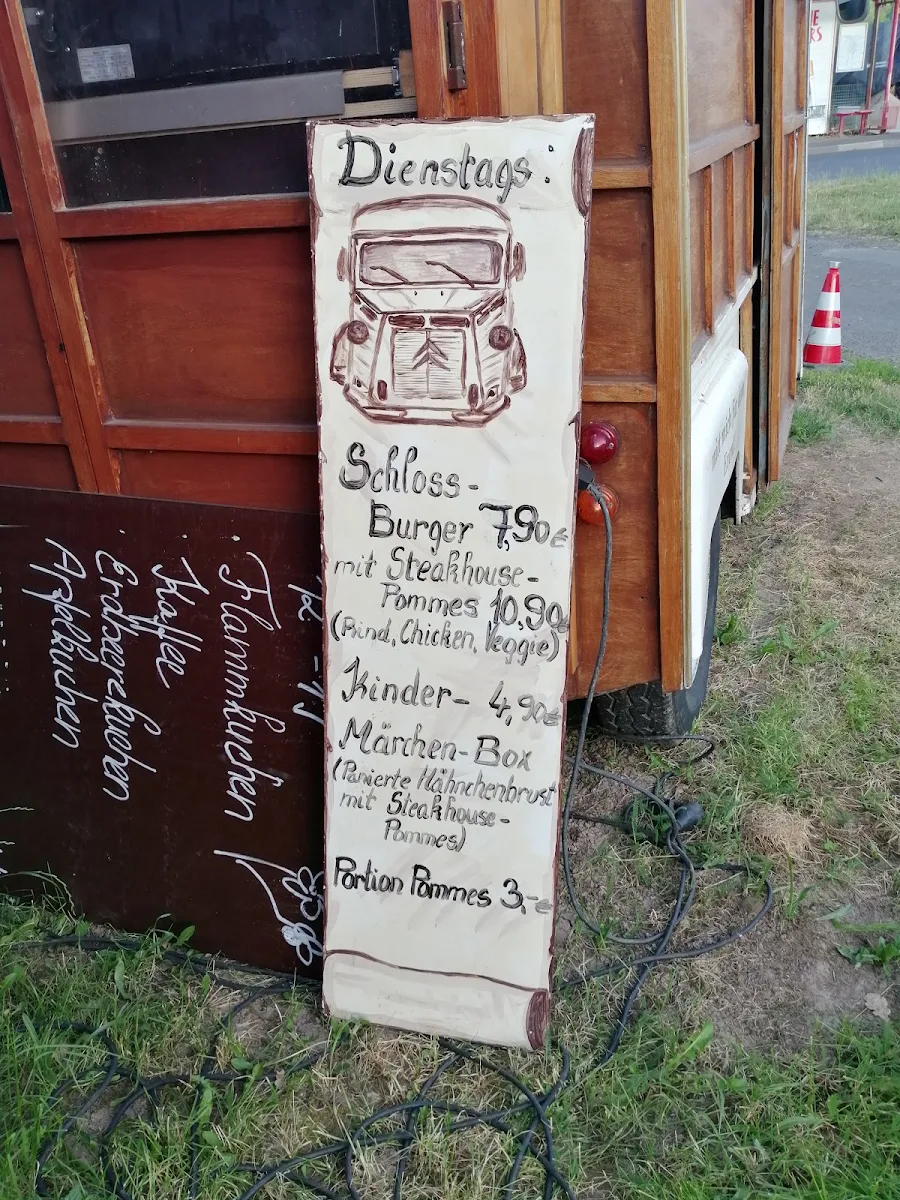 Dienstags:
Schloss-
Burger 7,90€
mit Steakhouse-
Pommes 10,90€
(Rind, Chicken, Veggie)
Kinder- 4,90€
Märchen-Box
(Panierte Hähnchenbrust
mit Steakhouse-
Pommes)
Portion Pommes 3,-€
· Flammkuchen
· Kaffee
· Erdbeerkuchen
Apfelkuchen